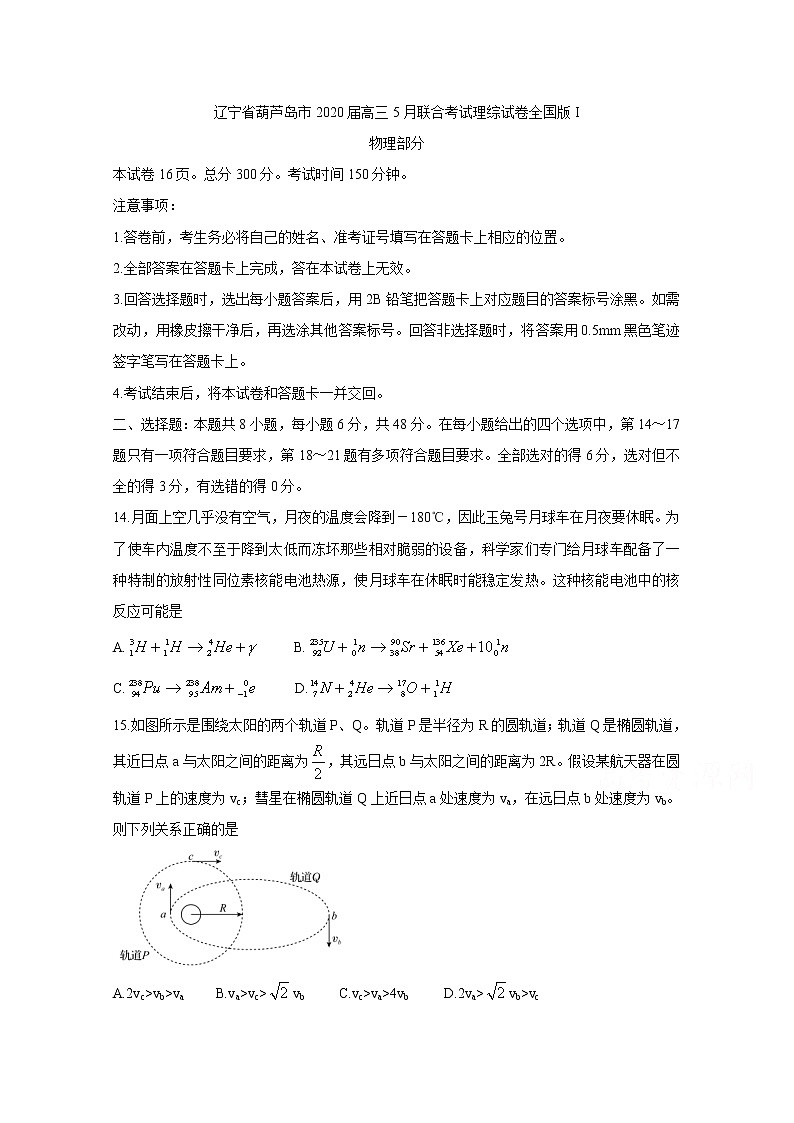 辽宁省葫芦岛市2020届高三5月联合考试理综试卷全国版I
物理部分
本试卷16页。总分300分。考试时间150分钟。
注意事项：
1.答卷前，考生务必将自己的姓名、准考证号填写在答题卡上相应的位置。
2.全部答案在答题卡上完成，答在本试卷上无效。
3.回答选择题时，选出每小题答案后，用2B铅笔把答题卡上对应题目的答案标号涂黑。如需
改动，用橡皮擦干净后，再选涂其他答案标号。回答非选择题时，将答案用0.5mm黑色笔迹
签字笔写在答题卡上。
4.考试结束后，将本试卷和答题卡一并交回。
二、选择题：本题共8小题，每小题6分，共48分。在每小题给出的四个选项中，第14～17
题只有一项符合题目要求，第18～21题有多项符合题目要求。全部选对的得6分，选对但不
全的得3分，有选错的得0分。
14.月面上空几乎没有空气，月夜的温度会降到－180℃，因此玉兔号月球车在月夜要休眠。为
了使车内温度不至于降到太低而冻坏那些相对脆弱的设备，科学家们专门给月球车配备了一
种特制的放射性同位素核能电池热源，使月球车在休眠时能稳定发热。这种核能电池中的核
反应可能是
A. ³₁H + ¹₁H → ⁴₂He + γ B. ²³⁵₉₂U + ¹₀n → ⁹⁰₃₈Sr + ¹³⁶₅₄Xe + 10¹₀n
C. ²³⁸₉₄Pu → ²³⁸₉₅Am + ⁰₋₁e D. ¹⁴₇N + ⁴₂He → ¹⁷₈O + ¹₁H
15.如图所示是围绕太阳的两个轨道P、Q。轨道P是半径为R的圆轨道；轨道Q是椭圆轨道，
其近日点a与太阳之间的距离为R/2，其远日点b与太阳之间的距离为2R。假设某航天器在圆
轨道P上的速度为vc；彗星在椭圆轨道Q上近日点a处速度为va，在远日点b处速度为vb。
则下列关系正确的是
c vc
轨道Q
va
a R b
vb
轨道P
A.2vc>vb>va B.va>vc>√2vb C.vc>va>4vb D.2va>√2vb>vc